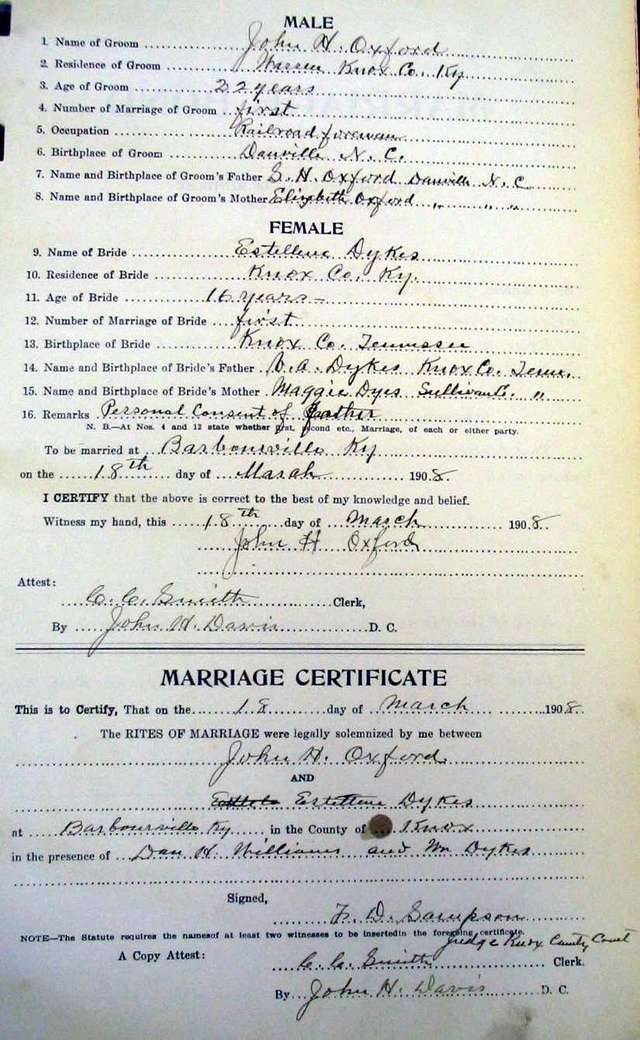 MALE
1. Name of Groom John H. Oxford
2. Residence of Groom Warren Knox Co. Ky
3. Age of Groom 22 years
4. Number of Marriage of Groom first
5. Occupation Railroad foreman
6. Birthplace of Groom Danville N. C.
7. Name and Birthplace of Groom's Father S. H. Oxford Danville N. C
8. Name and Birthplace of Groom's Mother Elizabeth Oxford " " "
FEMALE
9. Name of Bride Estellene Dykes
10. Residence of Bride Knox Co. Ky.
11. Age of Bride 16 years
12. Number of Marriage of Bride first
13. Birthplace of Bride Knox Co. Tennessee
14. Name and Birthplace of Bride's Father V. A. Dykes Knox Co. Tenn.
15. Name and Birthplace of Bride's Mother Maggie Dyes Sullivan Co. "
16. Remarks Personal Consent of Father
N. B.—At Nos. 4 and 12 state whether first, second etc., Marriage, of each or either party.
To be married at Barbourville Ky
on the 18th day of March 1908.
I CERTIFY that the above is correct to the best of my knowledge and belief.
Witness my hand, this 18th day of March 1908.
John H Oxford
Attest:
C. C. Smith Clerk,
By John H. Davis D. C.
MARRIAGE CERTIFICATE
This is to Certify, That on the 18 day of March 1908.
The RITES OF MARRIAGE were legally solemnized by me between
John H. Oxford
AND
Estellene Dykes
at Barbourville Ky in the County of Knox
in the presence of Dan H. Williams and Wm Dykes
Signed,
F. D. Sampson
NOTE—The Statute requires the namesof at least two witnesses to be insertedin the foregoing certificate.
Judge Knox County Court
A Copy Attest: C. C. Smith Clerk.
By John H. Davis D. C.